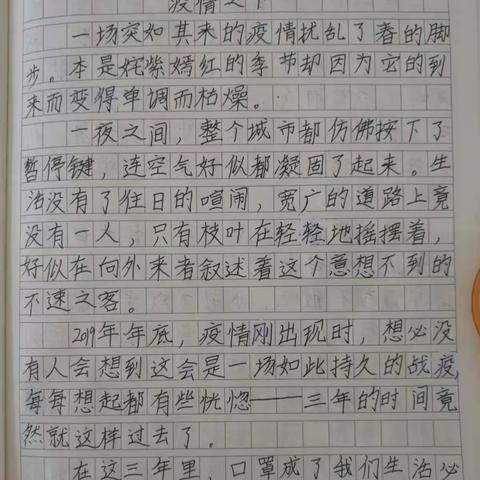 疫情之下
一场突如其来的疫情扰乱了春的脚
步。本是姹紫嫣红的季节却因为它的到
来而变得单调而枯燥。
一夜之间，整个城市都仿佛按下了
暂停键，连空气好似都凝固了起来。生
活没有了往日的喧闹，宽广的道路上竟
没有一人，只有枝叶在轻轻地摇摆着，
好似在向外来者叙述着这个意想不到的
不速之客。
2019年年底，疫情刚出现时，想必没
有人会想到这会是一场如此持久的战疫，
每每想起都有些恍惚——三年的时间竟
然就这样过去了。
在这三年里，口罩成了我们生活必